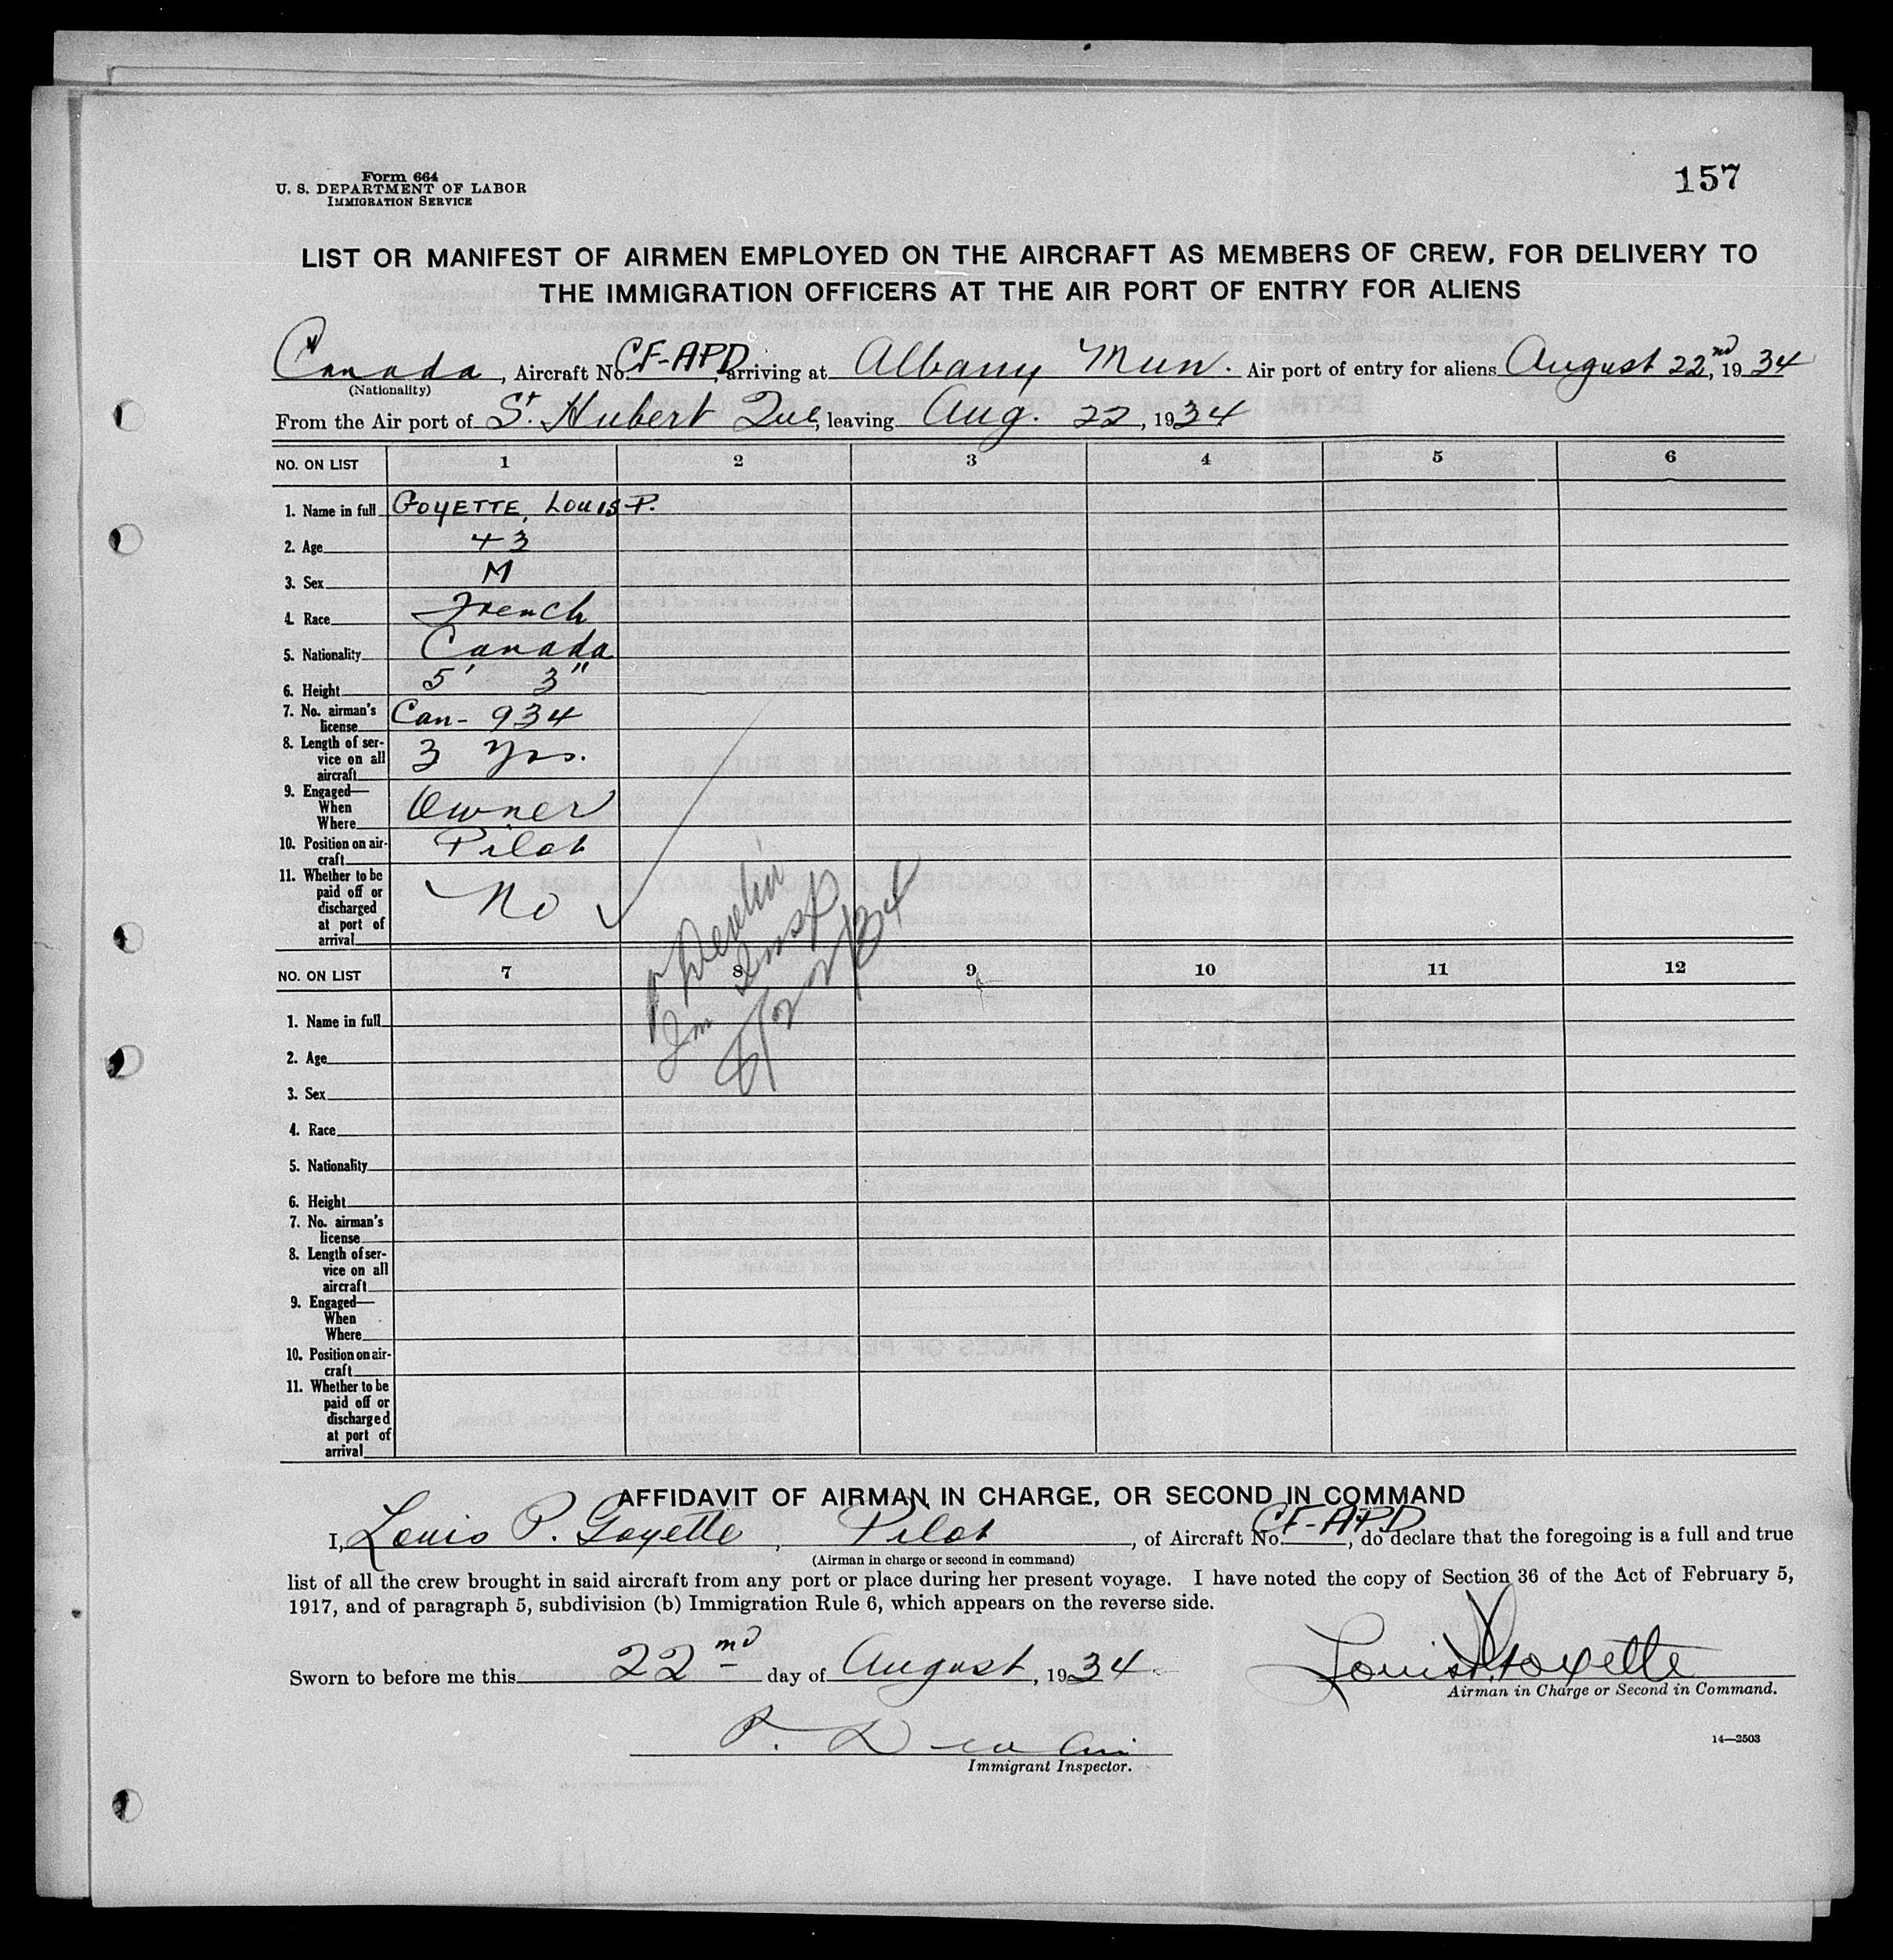 Form 664
U. S. DEPARTMENT OF LABOR
IMMIGRATION SERVICE
157
LIST OR MANIFEST OF AIRMEN EMPLOYED ON THE AIRCRAFT AS MEMBERS OF CREW, FOR DELIVERY TO
THE IMMIGRATION OFFICERS AT THE AIR PORT OF ENTRY FOR ALIENS
Canada, Aircraft No. CF-APD, arriving at Albany Mun. Air port of entry for aliens August 22nd, 1934
(Nationality)
From the Air port of St. Hubert Que, leaving Aug. 22, 1934
NO. ON LIST 1 2 3 4 5 6
1. Name in full GOYETTE, LOUIS P.
2. Age 43
3. Sex M
4. Race French
5. Nationality Canada
6. Height 5' 3"
7. No. airman's
license Can- 934
8. Length of ser-
vice on all
aircraft 3 yrs.
9. Engaged—
When
Where Owner
10. Position on air-
craft Pilot
11. Whether to be
paid off or
discharged
at port of
arrival No
P Devlin
Im Insp
8/22/34
NO. ON LIST 7 8 9 10 11 12
1. Name in full
2. Age
3. Sex
4. Race
5. Nationality
6. Height
7. No. airman's
license
8. Length of ser-
vice on all
aircraft
9. Engaged—
When
Where
10. Position on air-
craft
11. Whether to be
paid off or
discharged
at port of
arrival
AFFIDAVIT OF AIRMAN IN CHARGE, OR SECOND IN COMMAND
I, Louis P. Goyette, Pilot, of Aircraft No. CF-APD, do declare that the foregoing is a full and true
(Airman in charge or second in command)
list of all the crew brought in said aircraft from any port or place during her present voyage. I have noted the copy of Section 36 of the Act of February 5,
1917, and of paragraph 5, subdivision (b) Immigration Rule 6, which appears on the reverse side.
Sworn to before me this 22nd day of August, 1934
Louis P. Goyette
Airman in Charge or Second in Command.
P. Devlin
Immigrant Inspector.
14—2503